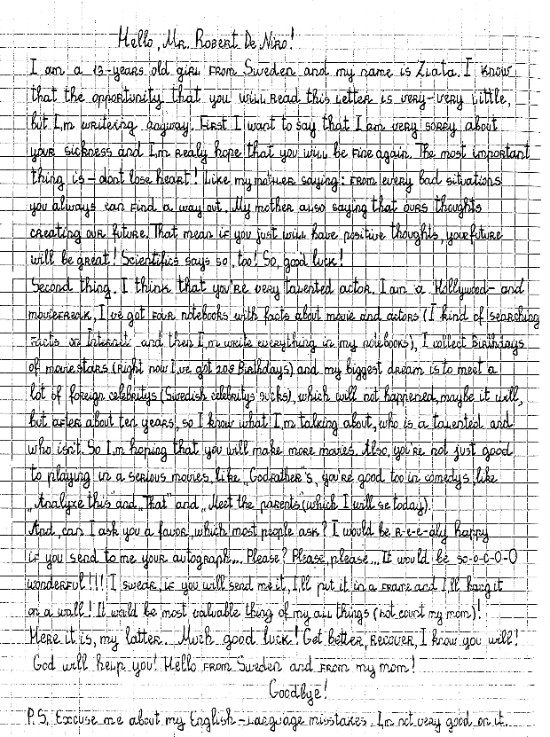 Hello, Mr. Robert De Niro!
I am a 13-years old girl from Sweden and my name is Zlata. I know
that the opportunity that you will read this letter is very-very little,
but I,m writering anyway. First I want to say that I am very sorry about
your sickness and I,m realy hope that you will be fine again. The most important
thing is - dont lose heart! Like my mother saying: from every bad situations
you always can find a way out. My mother also saying that ours thoughts
creating our future. That mean if you just will have positive thoughts, your future
will be great! Scientifics says so, too! So, good luck!
Second thing, I think that you're very talented actor. I am a Hollywood- and
moviefreak, I,ve got four notebooks with facts about movie and actors (I kind of searching
facts on Internet and then I,m write everything in my notebooks), I collect Birthdays
of moviestars (right now I,ve got 208 Birthdays) and my biggest dream is to meet a
lot of foreign celebritys (Swedish celebritys sucks), which will not happened, maybe it will,
but after about ten years, so I know what I,m talking about, who is a talented and
who isn't. So I,m hoping that you will make more movies. Also, you're not just good
to playing in a serious movies, like „Godfather"s, you're good too in comedys, like
„Analyze this" and „That" and „Meet the parents" (which I will se today).
And, can I ask you a favor, which most people ask? I would be r-e-e-aly happy
if you send to me your autograph... Please? Please, please... It would be so-o-o-o-o
wonderful!!! I swear, if you will send me it, I,ll put it in a frame and I,ll hang it
on a wall! It would be most valuable thing of my all things (not count my mom)!
Here it is, my latter. Much good luck! Get better, recover, I know you will!
God will help you! Hello from Sweden and from my mom!
Goodbye!
P.S. Excuse me about my English-Language misstakes. I,m not very good on it.